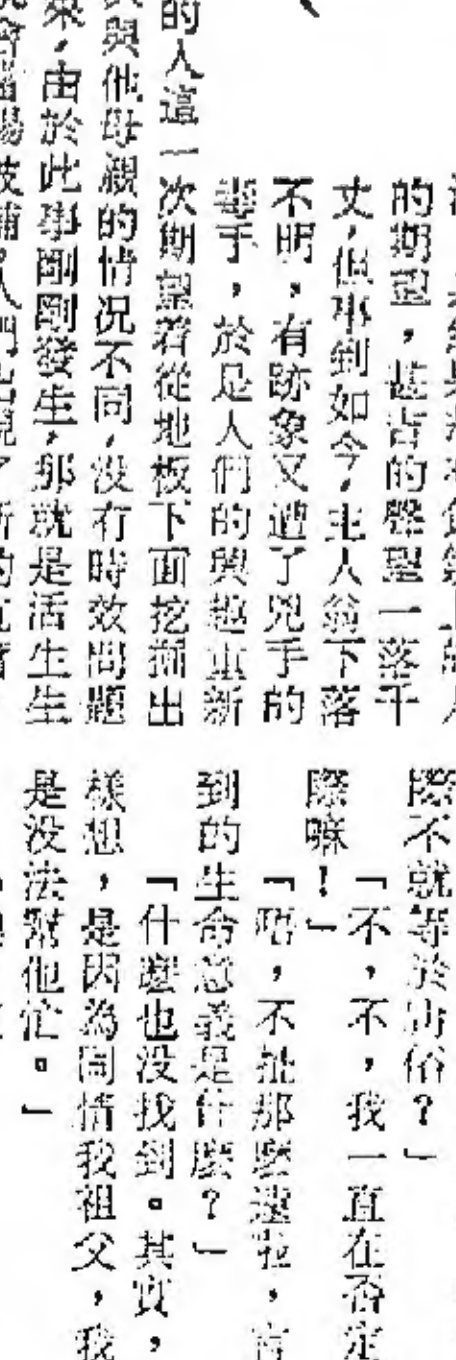 的期望，甚吉的聲望一落千
丈，但事到如今，主人翁下落
不明，有跡象又遭了兇手的
毒手，於是人們的興趣重新
的人這一次期望着從地板下面挖掘出
與他母親的情況不同，没有時效問題
果，由於此事剛剛發生，那就是活生生
際不就等於訪俗？」
「不，不，我一直在否定
際嘛！」
「唔，不扯那麽遠啦，
到的生命意義是什麽？」
「什麽也没找到。其實，
樣想，是因為同情我祖父，我
是没法幫他忙。」